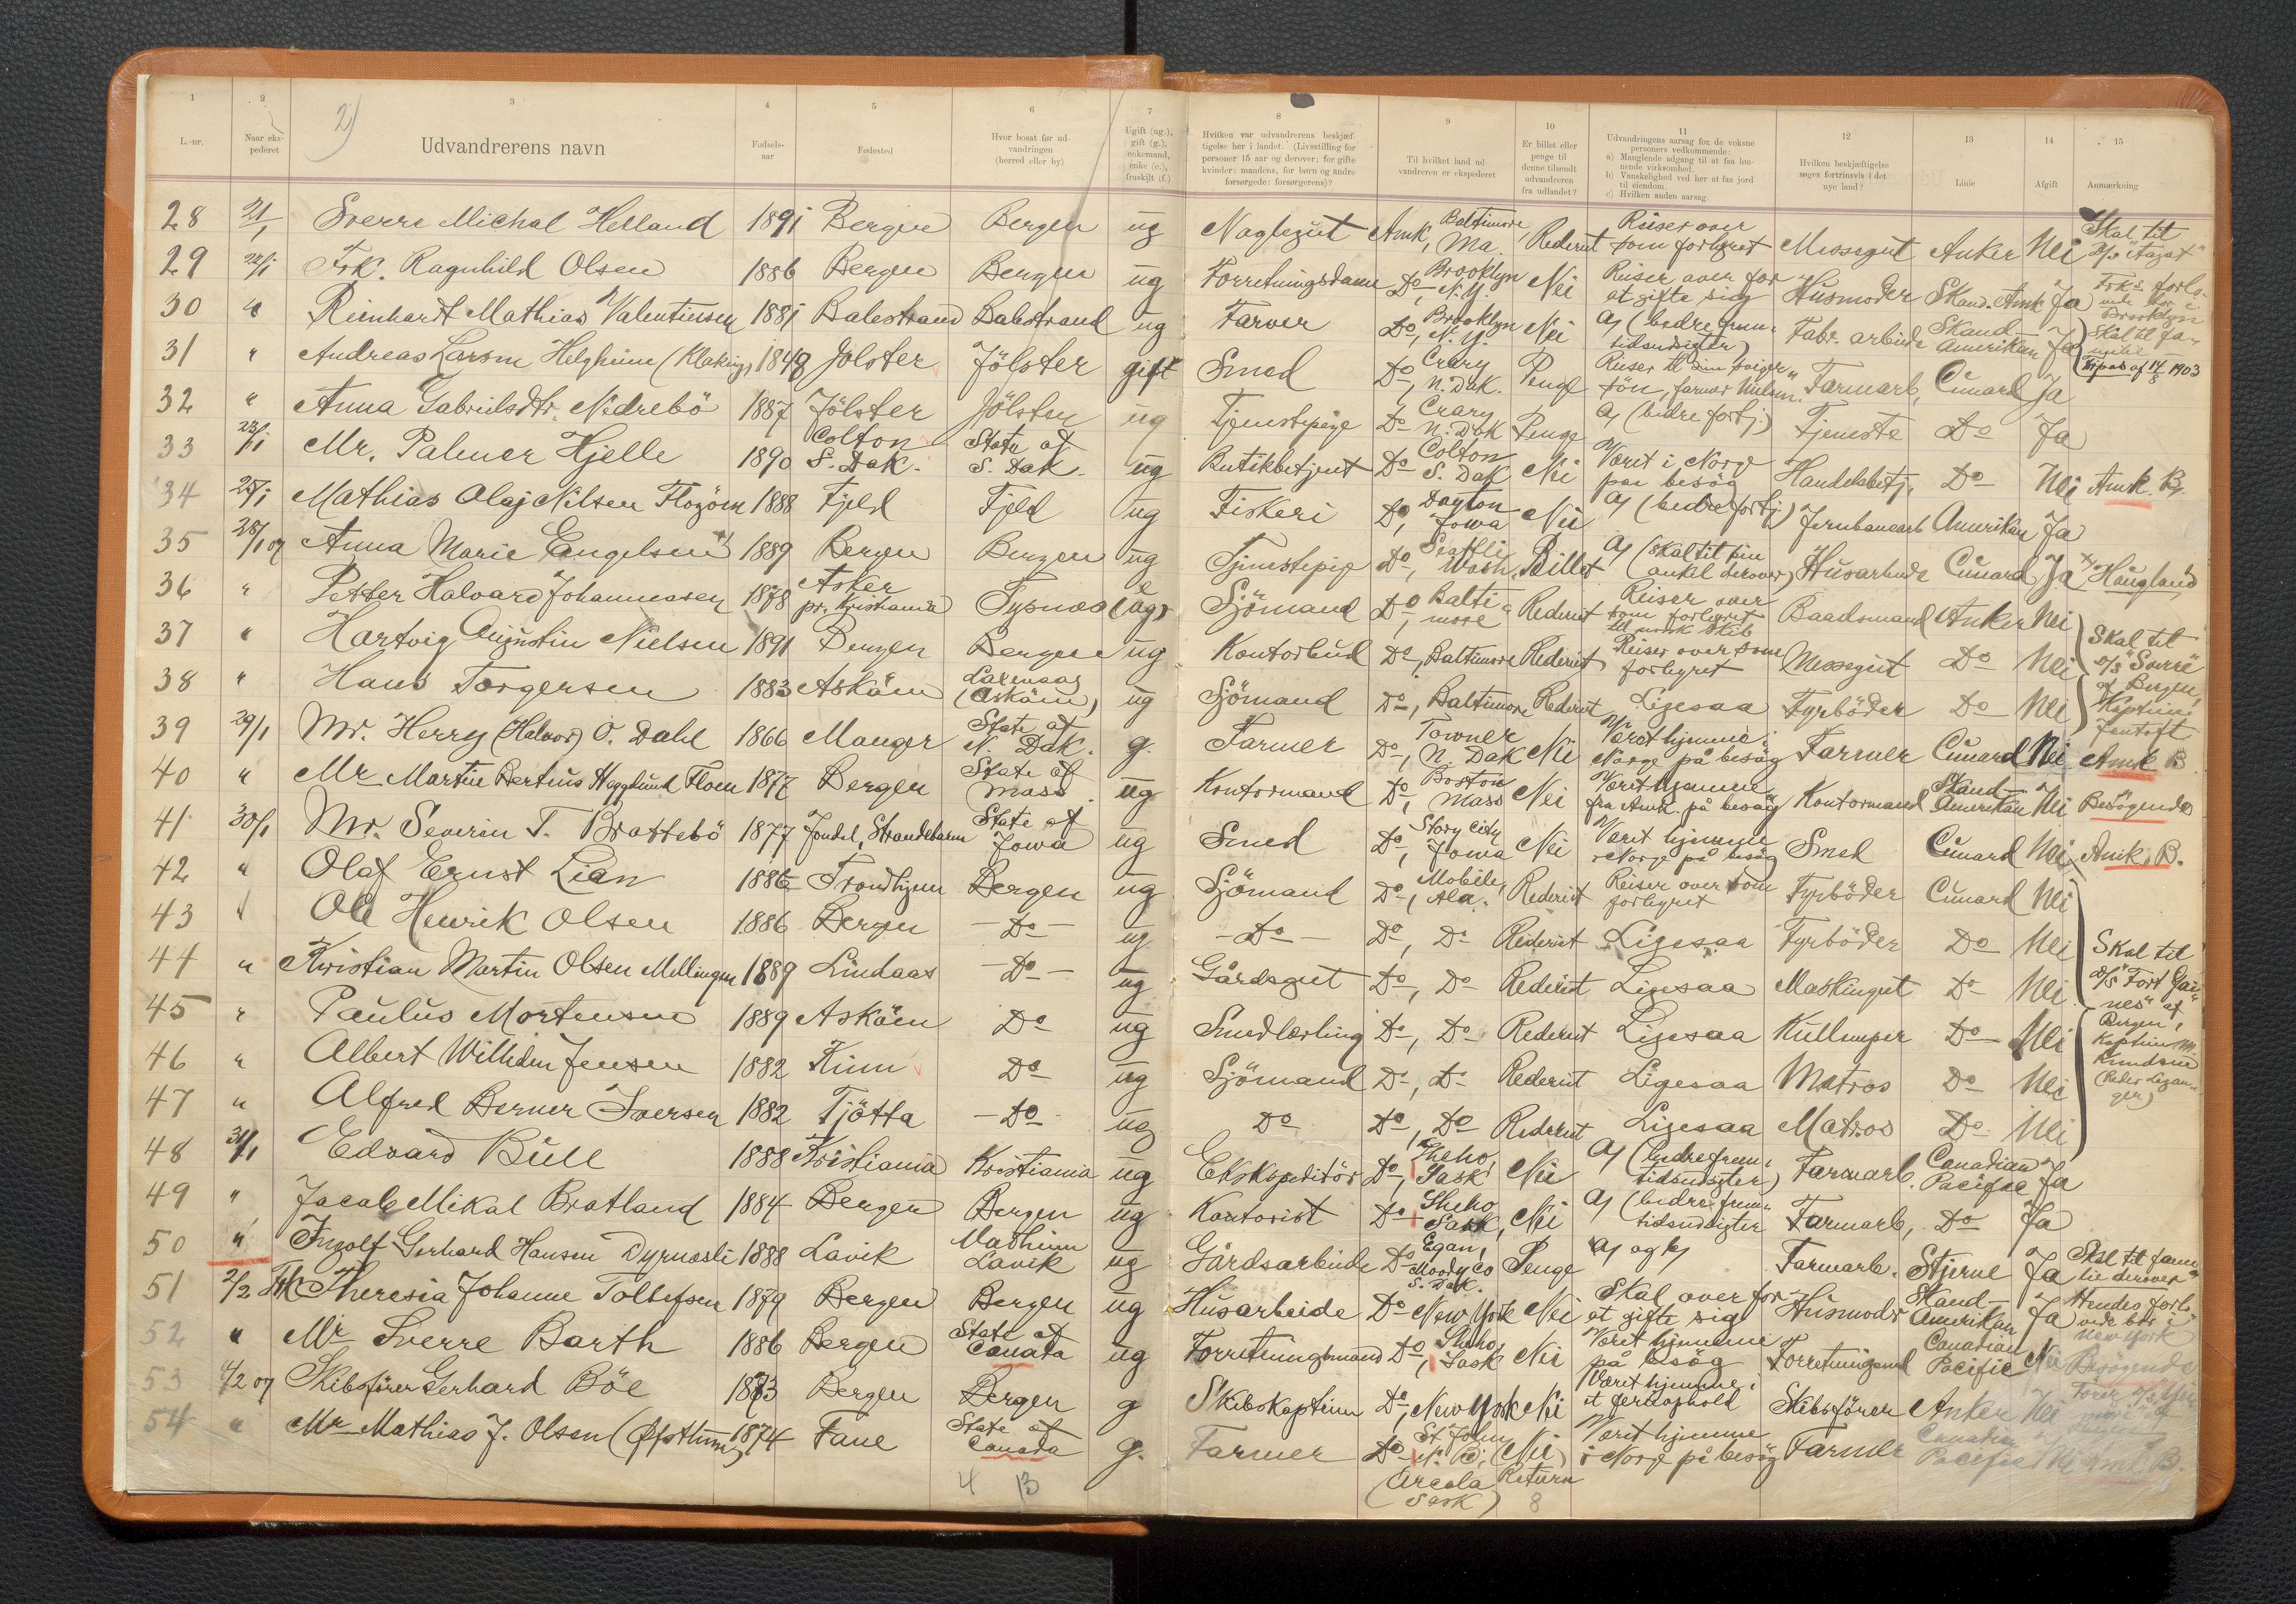 1 2 3 4 5 6 7 8 9 10 11 12 13 14 15
2)
L.-nr. | Naar ekspederet | Udvandrerens navn | Fødselsaar | Fødested | Hvor bosat før udvandringen (herred eller by) | Ugift (ug.), gift (g.), enkemand, enke (e.), fraskilt (f.) | Hvilken var udvandrerens beskjæftigelse her i landet. (Livsstilling for personer 15 aar og derover; for gifte kvinder: mandens, for børn og andre forsørgede: forsørgerens)? | Til hvilket land udvandreren er ekspederet | Er billet eller penge til denne tilsendt udvandreren fra udlandet? | Udvandringens aarsag for de voksne personers vedkommende: a) Manglende adgang til at faa lønnende virksomhed. b) Vanskelighed ved her at faa jord til eiendom. c) Hvilken anden aarsag. | Hvilken beskjæftigelse søges fortrinsvis i det nye land? | Linie | Afgift | Anmærkning
28 | 21/1 | Sverre Michal Helland | 1891 | Bergen | Bergen | ug | Naglegut | Amk, Baltimore, Ma. | Rederiet | Reiser over som forhyret | Messegut | Anker | Nei | Skal til D/S "Aagot"
29 | 22/1 | Frk. Ragnhild Olsen | 1886 | Bergen | Bergen | ug | Forretningsdame | Do, Brooklyn N.Y. | Nei | Reiser over for at gifte sig | Husmoder | Skand. Amk | Ja | Frk's forlovede bor i Brooklyn
30 | " | Reinhardt Mathias Valentinsen | 1881 | Balestrand | Balestrand | ug | Farver | Do, Brooklyn N.Y. | Nei | a) (bedre fremtidsudsigter) | Fabr. arbeide | Skand-Amerikan | Ja | Skal til familie
31 | " | Andreas Larsen Helgheim (Klakeeg) | 1848 | Jølster | Jölster | gift | Smed | Do, Crary N. Dak. | Penge | Reiser til sin svigersön, farmer | Farmarb, | Cunard | Ja | 14/8 1903
32 | " | Anna Gabrielsdtr. Nedrebö | 1887 | Jölster | Jölster | ug | Tjenestepige | Do Crary N. Dak | Penge | a) (bedre fortj.) | Tjeneste | Do | Ja
33 | 23/1 | Mr. Palmer Hjelle | 1890 | Colton S. Dak. | State of S. Dak. | ug | Butikbetjent | Do Colton S. Dak | Nei | Været i Norge paa besøg | Handelsbetj. | Do | Nei | Amk. B.
34 | 25/1 | Mathias Olaj Nilsen | 1888 | Fjeld | Fjeld | ug | Fiskeri | Do, Dayton Jowa | Nei | a) (bedre fortj) | Jernbanearb | Amerikan | Ja
35 | 28/1 07 | Anna Marie Engelsen x) | 1889 | Bergen | Bergen | ug | Tjenestepige | Do, Seattle Wash. | Billet | a) (skal til sin onkel derover) | Husarbeide | Cunard | Ja | x) Haugland
36 | " | Petter Halvard Johannessen | 1878 | Asker pr. Kristiania | Tysnæs | (ug) | Sjömand | Do, Baltimore | Rederiet | Reiser over som forhyret til norsk skib | Baadsmand | Anker | Nei
37 | " | Hartvig Augustin Nielsen | 1891 | Bergen | Bergen | ug | Kontorbud | Do, Baltimore | Rederiet | Reiser over som forhyret | Messegut | Do | Nei | Skal til D/S "Sverre"
38 | " | Hans Torgersen | 1883 | Asköen | Laxevaag (Asköen) | ug | Sjömand | Do, Baltimore | Rederiet | Ligesaa | Fyrböder | Do | Nei | af Bergen, Kaptein Jentoft
39 | 29/1 | Mr. Herry (Halvor) O. Dahl | 1866 | Manger | State of N. Dak. | g. | Farmer | Do, Towner N. Dak | Nei | Været hjemme i Norge på besög | Farmer | Cunard | Nei | Amk B
40 | " | Mr Martin Bertius Hegglund Floen | 1877 | Bergen | State of Mass. | ug | Kontormand | Do, Boston Mass | Nei | Været hjemme fra Amk. på besög | Kontormand | Skand-Amerikan | Nei | Besögende
41 | 30/1 | Mr. Severin T. Brattebö | 1877 | Jondal, Strandebarm | State of Jowa | ug | Smed | Do, Story City Jowa | Nei | Været hjemme i Norge på besög | Smed | Cunard | Nei | Amk, B.
42 | " | Olaf Ernst Lian | 1886 | Trondhjem | Bergen | ug | Sjömand | Do, Mobile, Ala. | Rederiet | Reiser over som forhyret | Fyrböder | Cunard | Nei
43 | " | Ole Henrik Olsen | 1886 | Bergen | - Do - | ug | - Do - | Do, Do | Rederiet | Ligesaa | Fyrböder | Do | Nei
44 | " | Kristian Martin Olsen Mellingen | 1889 | Lindaas | - Do - | ug | Gårdsgut | Do, Do | Rederiet | Ligesaa | Maskingut | Do | Nei | Skal til D/S "Fort Gaines" af
45 | " | Paulus Mortensen | 1889 | Asköen | Do | ug | Smedlærling | Do, Do | Rederiet | Ligesaa | Kullemper | Do | Nei | Bergen, Kaptein M. Knudsen
46 | " | Albert Wilhelm Jensen | 1882 | Kinn | Do | ug | Sjömand | Do, Do | Rederiet | Ligesaa | Matros | Do | Nei
47 | " | Alfred Berner Iversen | 1882 | Tjötta | - Do - | ug | Do | Do, Do | Rederiet | Ligesaa | Matros | Do | Nei
48 | 31/1 | Edvard Bull | 1888 | Kristiania | Kristiania | ug | Ekskpeditör | Do, Sheho, Sask | Nei | a) (bedre fremtidsudsigter) | Farmarb. | Canadian Pacific | Ja
49 | " | Jacob Mikal Bratland | 1884 | Bergen | Bergen | ug | Kontorist | Do Sheho Sask, | Nei | a) (bedre fremtidsudsigter | Farmarb, | Do | Ja
50 | " | Ingolf Gerhard Hansen Dyrnæsli | 1888 | Lavik | Lavik | ug | Gårdsarbeide | Do Egan, Moody Co S. Dak. | Penge | a) og b) | Farmarb. | Stjerne | Ja | Skal til familie derover
51 | 2/2 | Frk Theresia Johanne Tollefsen | 1879 | Bergen | Bergen | ug | Husarbeide | Do New York | Nei | Skal over for at gifte sig | Husmodr | Skand-Amerikan | Ja | Hendes forlovede bor i New York
52 | " | Mr Sverre Barth | 1886 | Bergen | State of Canada | ug | Forretningsmand | Do, Sheho, Sask | Nei | Været hjemme på besög | Forretningsmd | Canadian Pacific | Nei | Besögende
53 | 4/2 07 | Skibsförer Gerhard Böe | 1873 | Bergen | Bergen | g | Skibskaptein | Do, New York | Nei | Været hjemme i et ferieophold | Skibsförer | Anker | Nei
54 | " | Mr Mathias J. Olsen (Øpsthun) | 1874 | Fane | State of Canada | g. | Farmer | Do St. John N.B. (Arcola Sask) | (Nei) Return | Været hjemme i Norge på besög | Farmer | Canadian Pacific | Nei | Amk B.
4 13 8